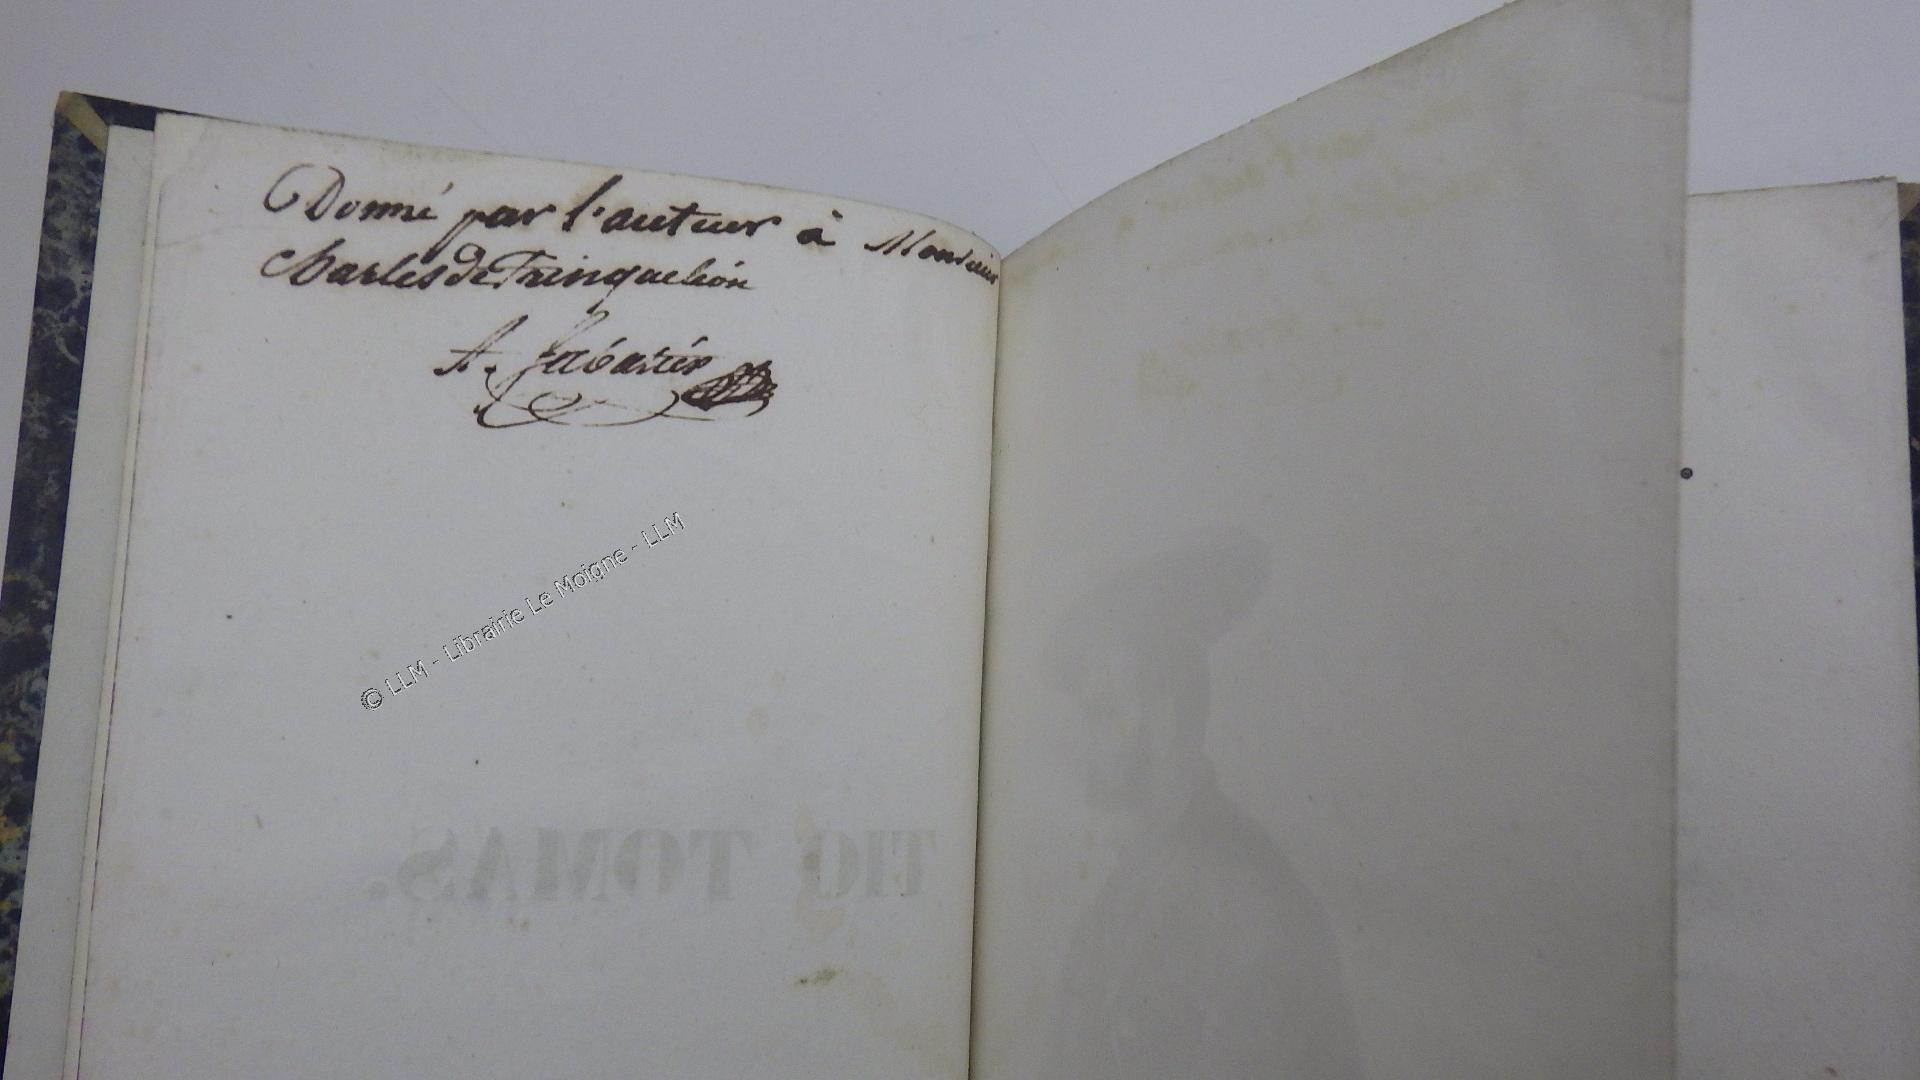 Donné par l'auteur à Monsieur
charles de Trinqueléon
A.
© LLM - Librairie Le Moigne - LLM
TIO TOMAS.